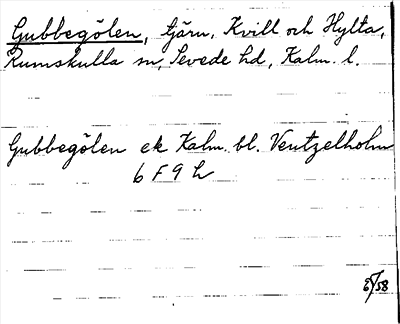 Gubbegölen, tjärn, Kvill och Hylta,
Rumskulla sn, Sevede hd, Kalm. l.
Gubbegölen ek Kalm. bl. Ventzelholm
6 F 9 h
58